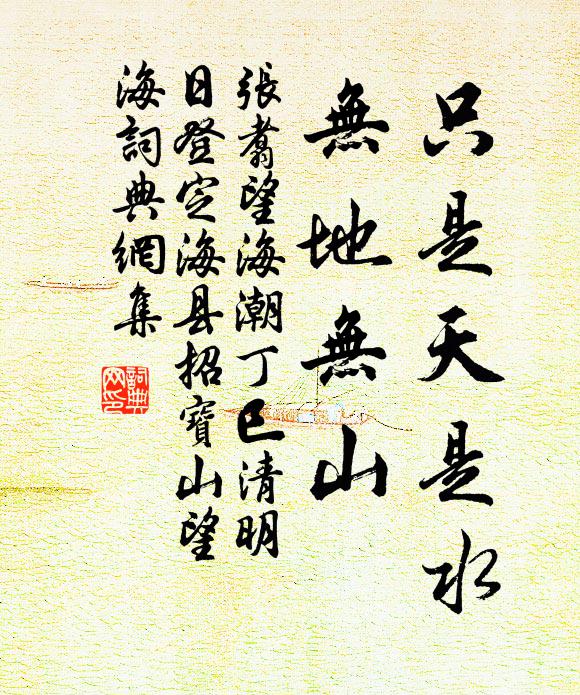 只是天是水
無地無山
張翥望海潮丁巳清明
日登定海县招寶山望
海詞典網集
詞典
网印